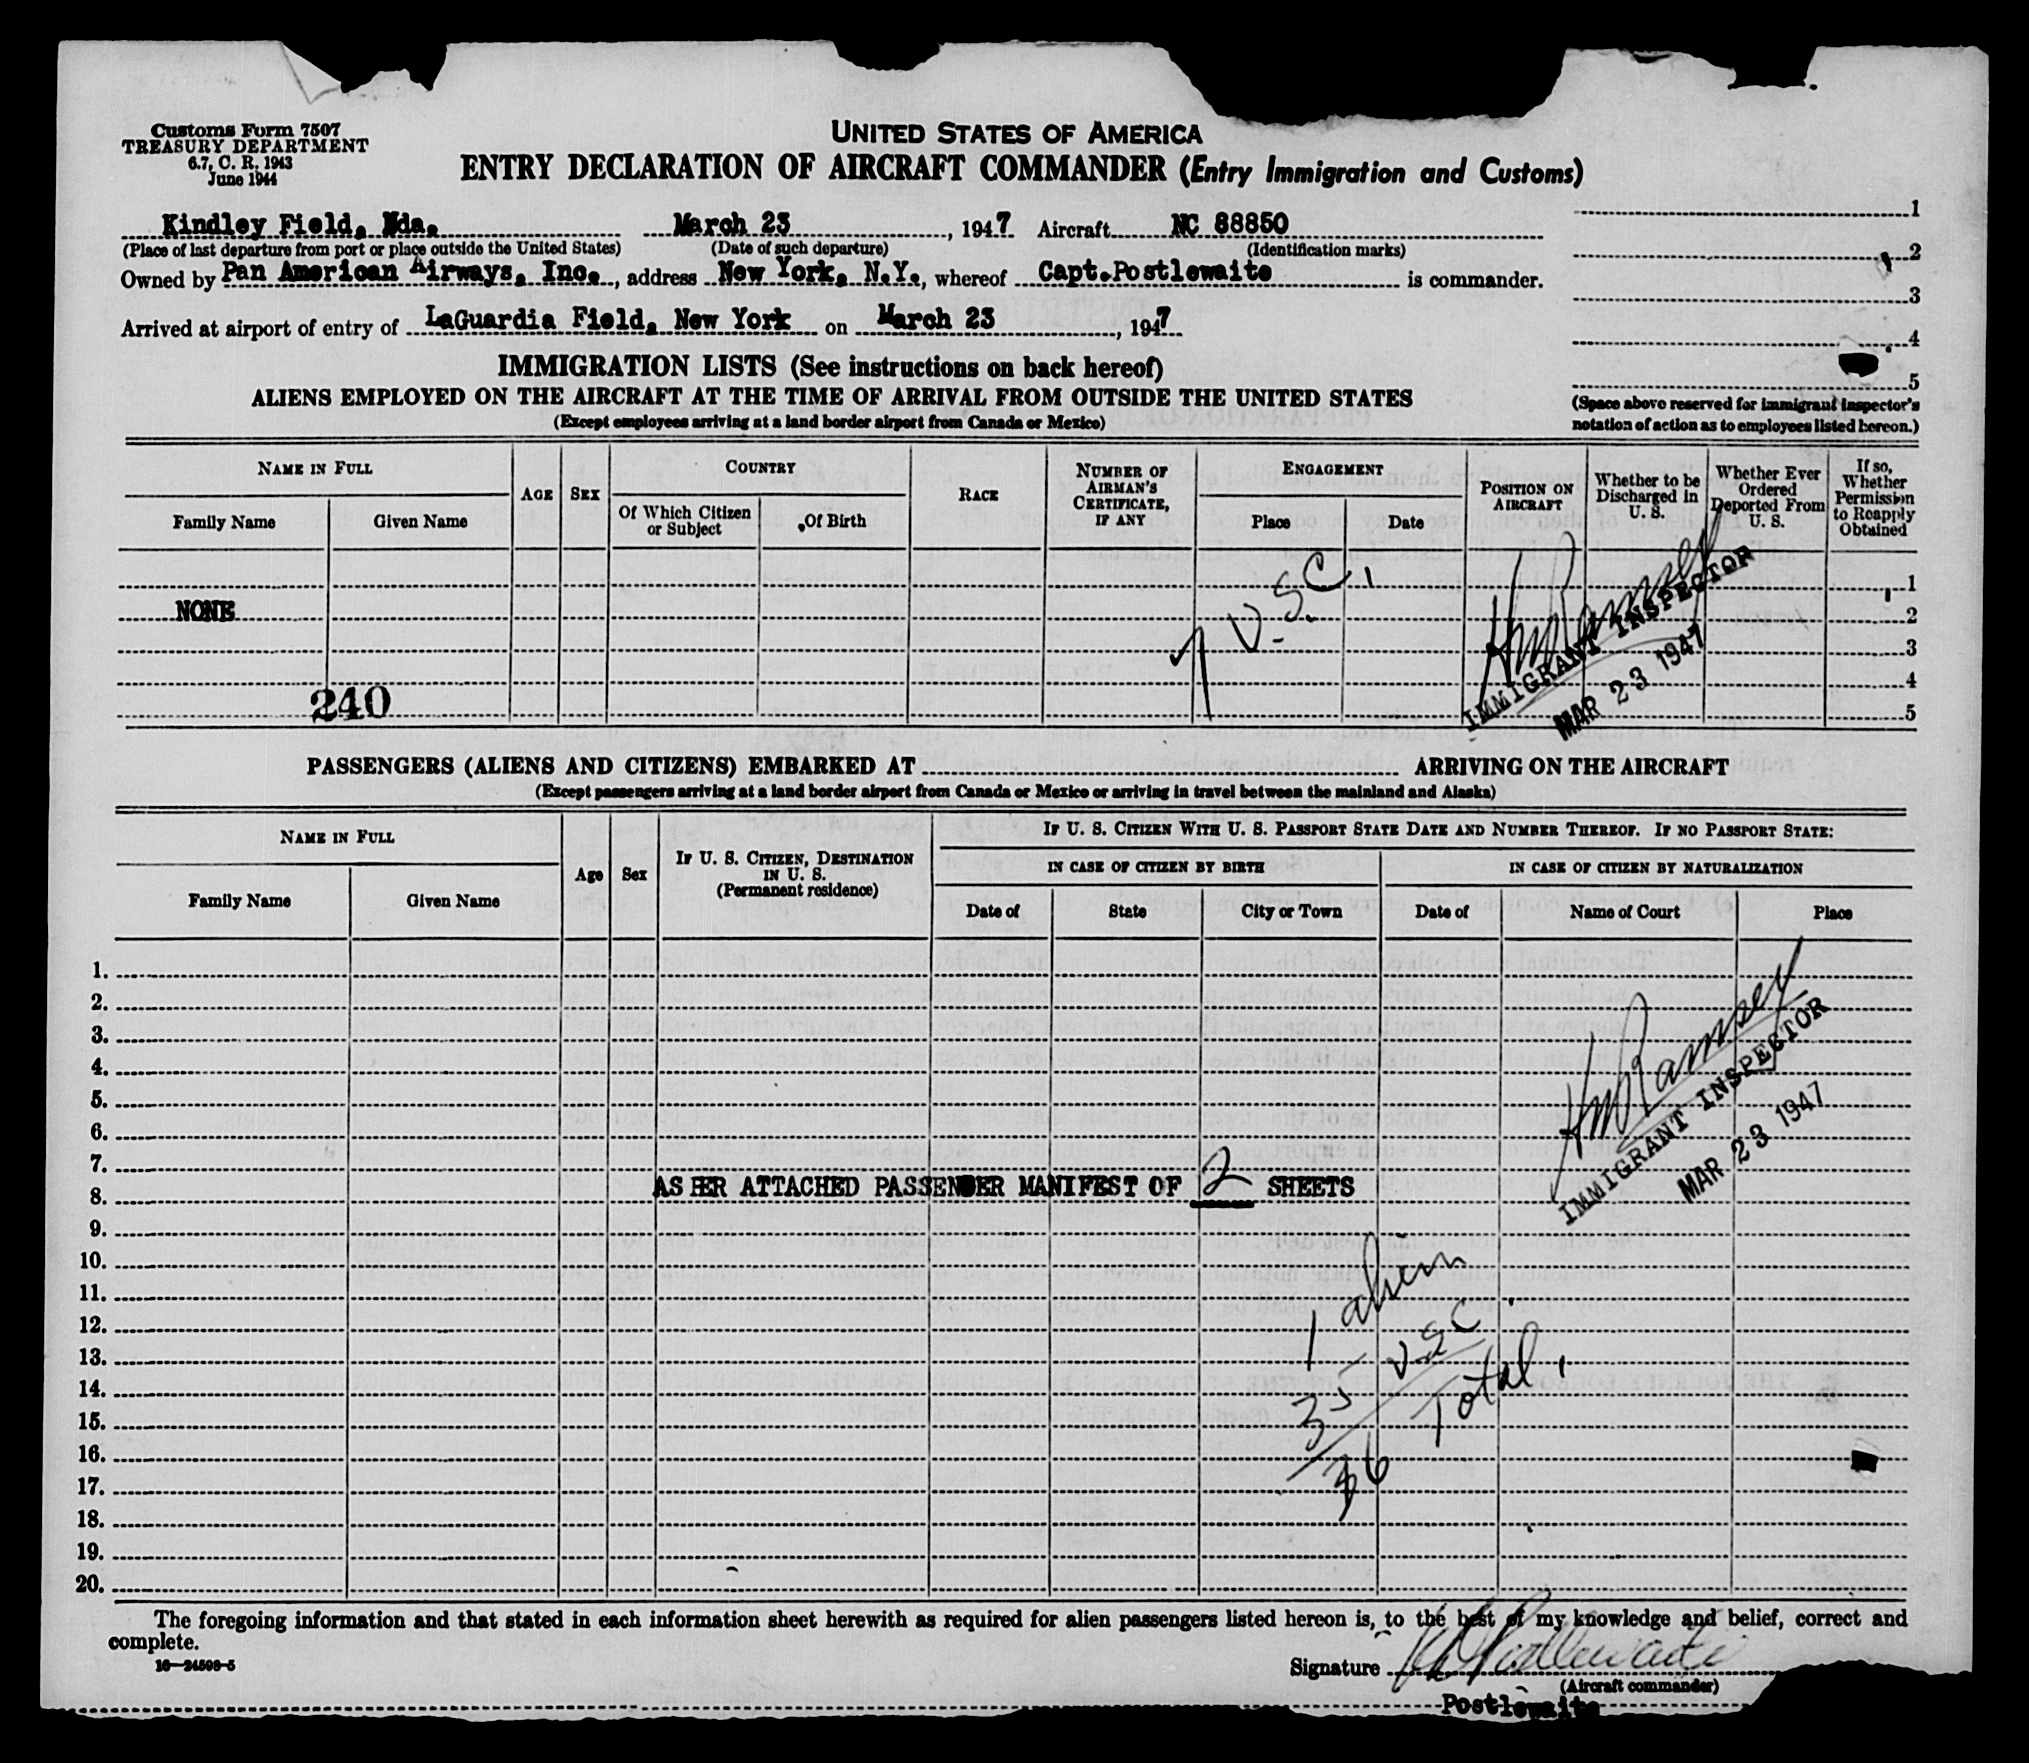 Customs Form 7507
TREASURY DEPARTMENT
6.7, C. R. 1943
June 1944
UNITED STATES OF AMERICA
ENTRY DECLARATION OF AIRCRAFT COMMANDER (Entry Immigration and Customs)
Kindley Field, Bda. March 23, 1947 Aircraft NC 88850
(Place of last departure from port or place outside the United States) (Date of such departure) (Identification marks)
Owned by Pan American Airways, Inc., address New York, N.Y., whereof Capt.Postlewaite is commander.
Arrived at airport of entry of LaGuardia Field, New York on March 23, 1947
1
2
3
4
5
(Space above reserved for immigrant inspector's
notation of action as to employees listed hereon.)
IMMIGRATION LISTS (See instructions on back hereof)
ALIENS EMPLOYED ON THE AIRCRAFT AT THE TIME OF ARRIVAL FROM OUTSIDE THE UNITED STATES
(Except employees arriving at a land border airport from Canada or Mexico)
NAME IN FULL
Family Name Given Name
AGE SEX
COUNTRY
Of Which Citizen or Subject
Of Birth
RACE
NUMBER OF AIRMAN'S CERTIFICATE, IF ANY
ENGAGEMENT
Place Date
POSITION ON AIRCRAFT
Whether to be Discharged in U. S.
Whether Ever Ordered Deported From U. S.
If so, Whether Permission to Reapply Obtained
1
NONE 2
3
4
240 5
7 U.S.C.
HM Ramsey
IMMIGRANT INSPECTOR
MAR 23 1947
PASSENGERS (ALIENS AND CITIZENS) EMBARKED AT ARRIVING ON THE AIRCRAFT
(Except passengers arriving at a land border airport from Canada or Mexico or arriving in travel between the mainland and Alaska)
NAME IN FULL
Family Name Given Name
Age Sex
IF U. S. CITIZEN, DESTINATION IN U. S.
(Permanent residence)
IF U. S. CITIZEN WITH U. S. PASSPORT STATE DATE AND NUMBER THEREOF. IF NO PASSPORT STATE:
IN CASE OF CITIZEN BY BIRTH IN CASE OF CITIZEN BY NATURALIZATION
Date of State City or Town Date of Name of Court Place
1.
2.
3.
4.
5.
6.
7.
HM Ramsey
IMMIGRANT INSPECTOR
MAR 23 1947
8. AS PER ATTACHED PASSENGER MANIFEST OF 2 SHEETS
9.
10.
11.
12.
13.
14.
15.
16.
17.
18.
19.
20.
1 alien
35 USC
36 Total.
The foregoing information and that stated in each information sheet herewith as required for alien passengers listed hereon is, to the best of my knowledge and belief, correct and
complete.
16—24598-5
Signature Postlewaite
(Aircraft commander)
Postlewaite